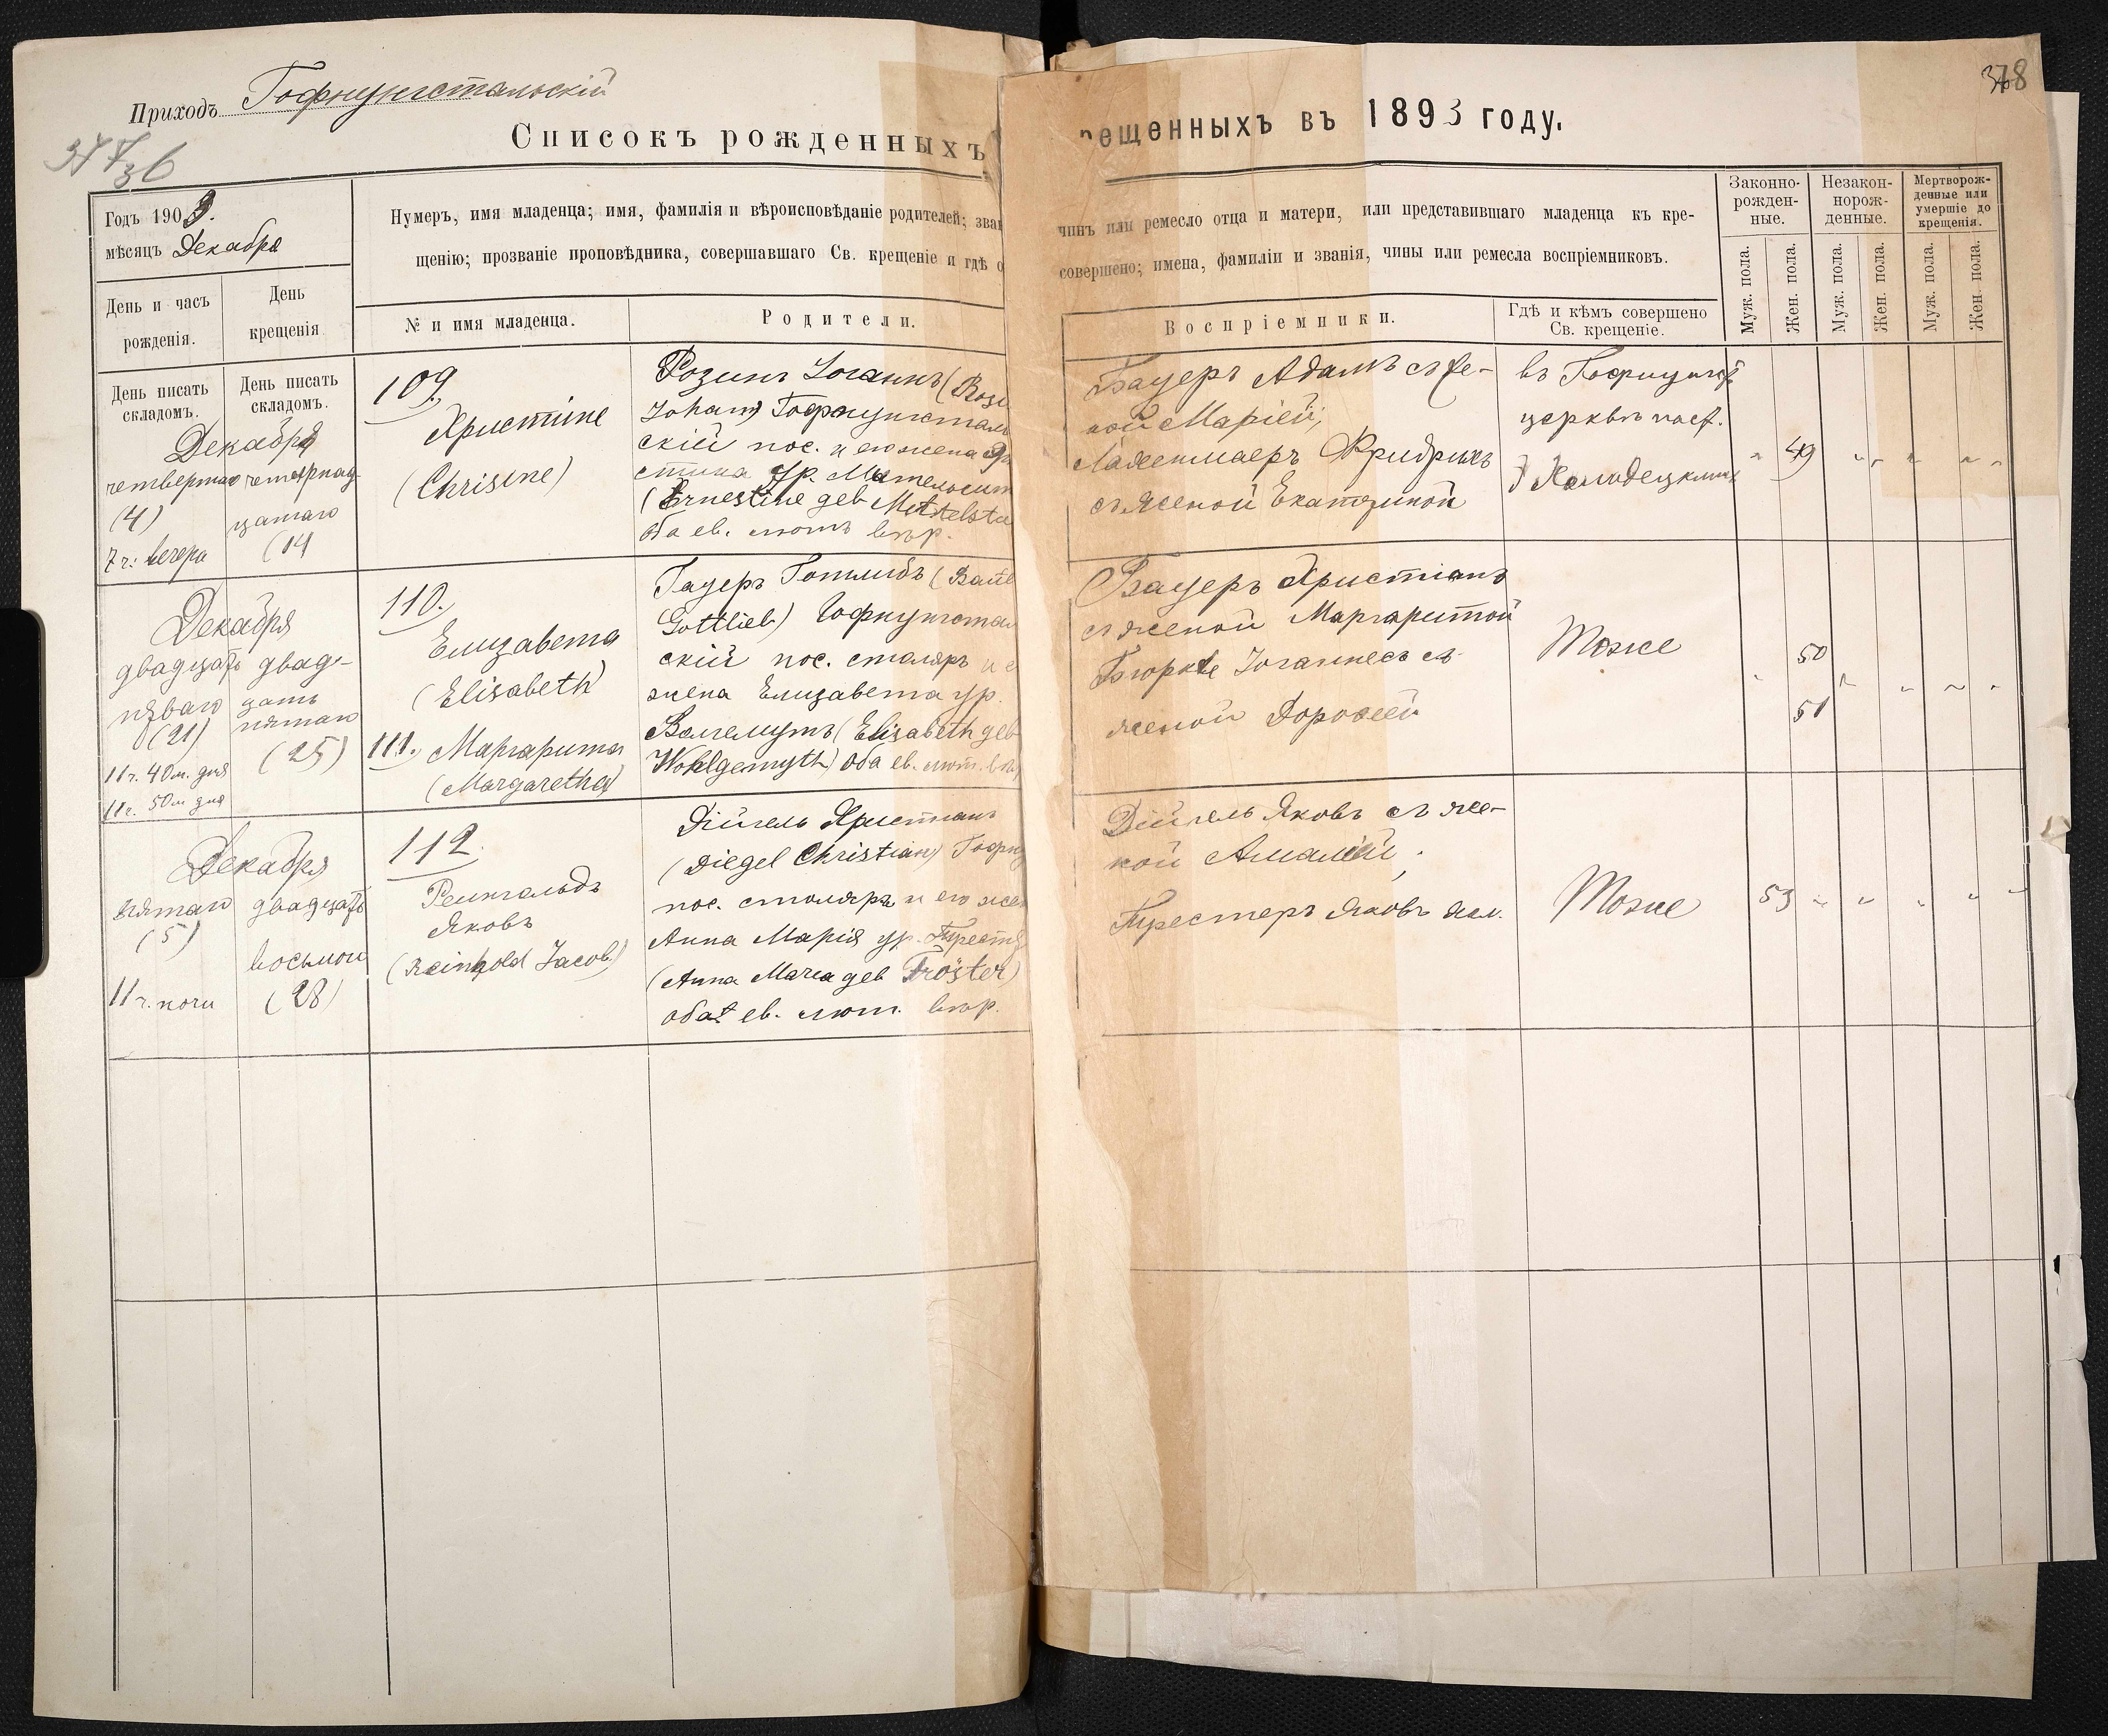 Приходъ Гофнунгстальскій
378
Списокъ рожденныхъ
рещенныхъ въ 1893 году.
Годъ 1903.
мѣсяцъ Декабрь
Нумеръ, имя младенца; имя, фамилія и вѣроисповѣданіе родителей; зва
щенію; прозваніе проповѣдника, совершавшаго Св. крещеніе и гдѣ о
чинъ или ремесло отца и матери, или представившаго младенца къ кре-
совершено; имена, фамиліи и званія, чины или ремесла воспріемниковъ.
Законно-
рожден-
ные.
Незакон-
норож-
денные.
Мертворож-
денные или
умершіе до
крещенія.
Муж. пола.
Жен. пола.
Муж. пола.
Жен. пола.
Муж. пола.
Жен. пола.
День и часъ
рожденія.
День
крещенія.
№ и имя младенца.
Родители.
Воспріемники.
Гдѣ и кѣмъ совершено
Св. крещеніе.
День писать
складомъ.
День писать
складомъ.
Декабря
четвертаго
(4)
7 ч. вечера
четырнад
цатаго
(14
109.
Христине
(Chrisine)
Розинъ Іоганнъ (Rosi
Johann) Гофнунгсталь
скій пос. и его жена Эр
стина ур. Мительсит
(Ernestine geb Mittelste
оба ев. лют вѣр.
Бауеръ Адамъ съ же-
ной Маріей;
Лахенмаеръ Фридрихъ
съ женой Екатериной
въ Гофнунгст
церквѣ паст.
49
Декабря
двадцать
перваго
(21)
11 ч. 40 м. дня
11 ч. 50 м дня
двад-
цать
пятаго
(25)
110.
Елизавета
(Elisabeth)
111. Маргарита
(Margaretha)
Бауеръ Готлибъ (Baue
Gottlieb) Гофнунгстал
скій пос. столяръ и е
жена Елизавета ур.
Волгемутъ (Elisabeth geb
Wohlgemuth) оба ев. лют. вѣ
Бауеръ Христіанъ
съ женой Маргаритой
Бюркле Іоганнесъ съ
женой Доротеей
Тоже
50
51
Декабря
пятаго
(5)
11 ч. ночи
двадцать
восьмого
(28)
112.
Рейнгольдъ
Яковъ
(Reinhold Jacob)
Дійгель Христіанъ
(Diegel Christian) Гофну
пос. столяръ и его жен
Анна Марія ур. Трестер
(Anna Maria geb Tröster)
оба ев. лют. вѣр.
Дійгель Яковъ съ же-
ной Амаліей;
Трестеръ Яковъ хол.
Тоже
53